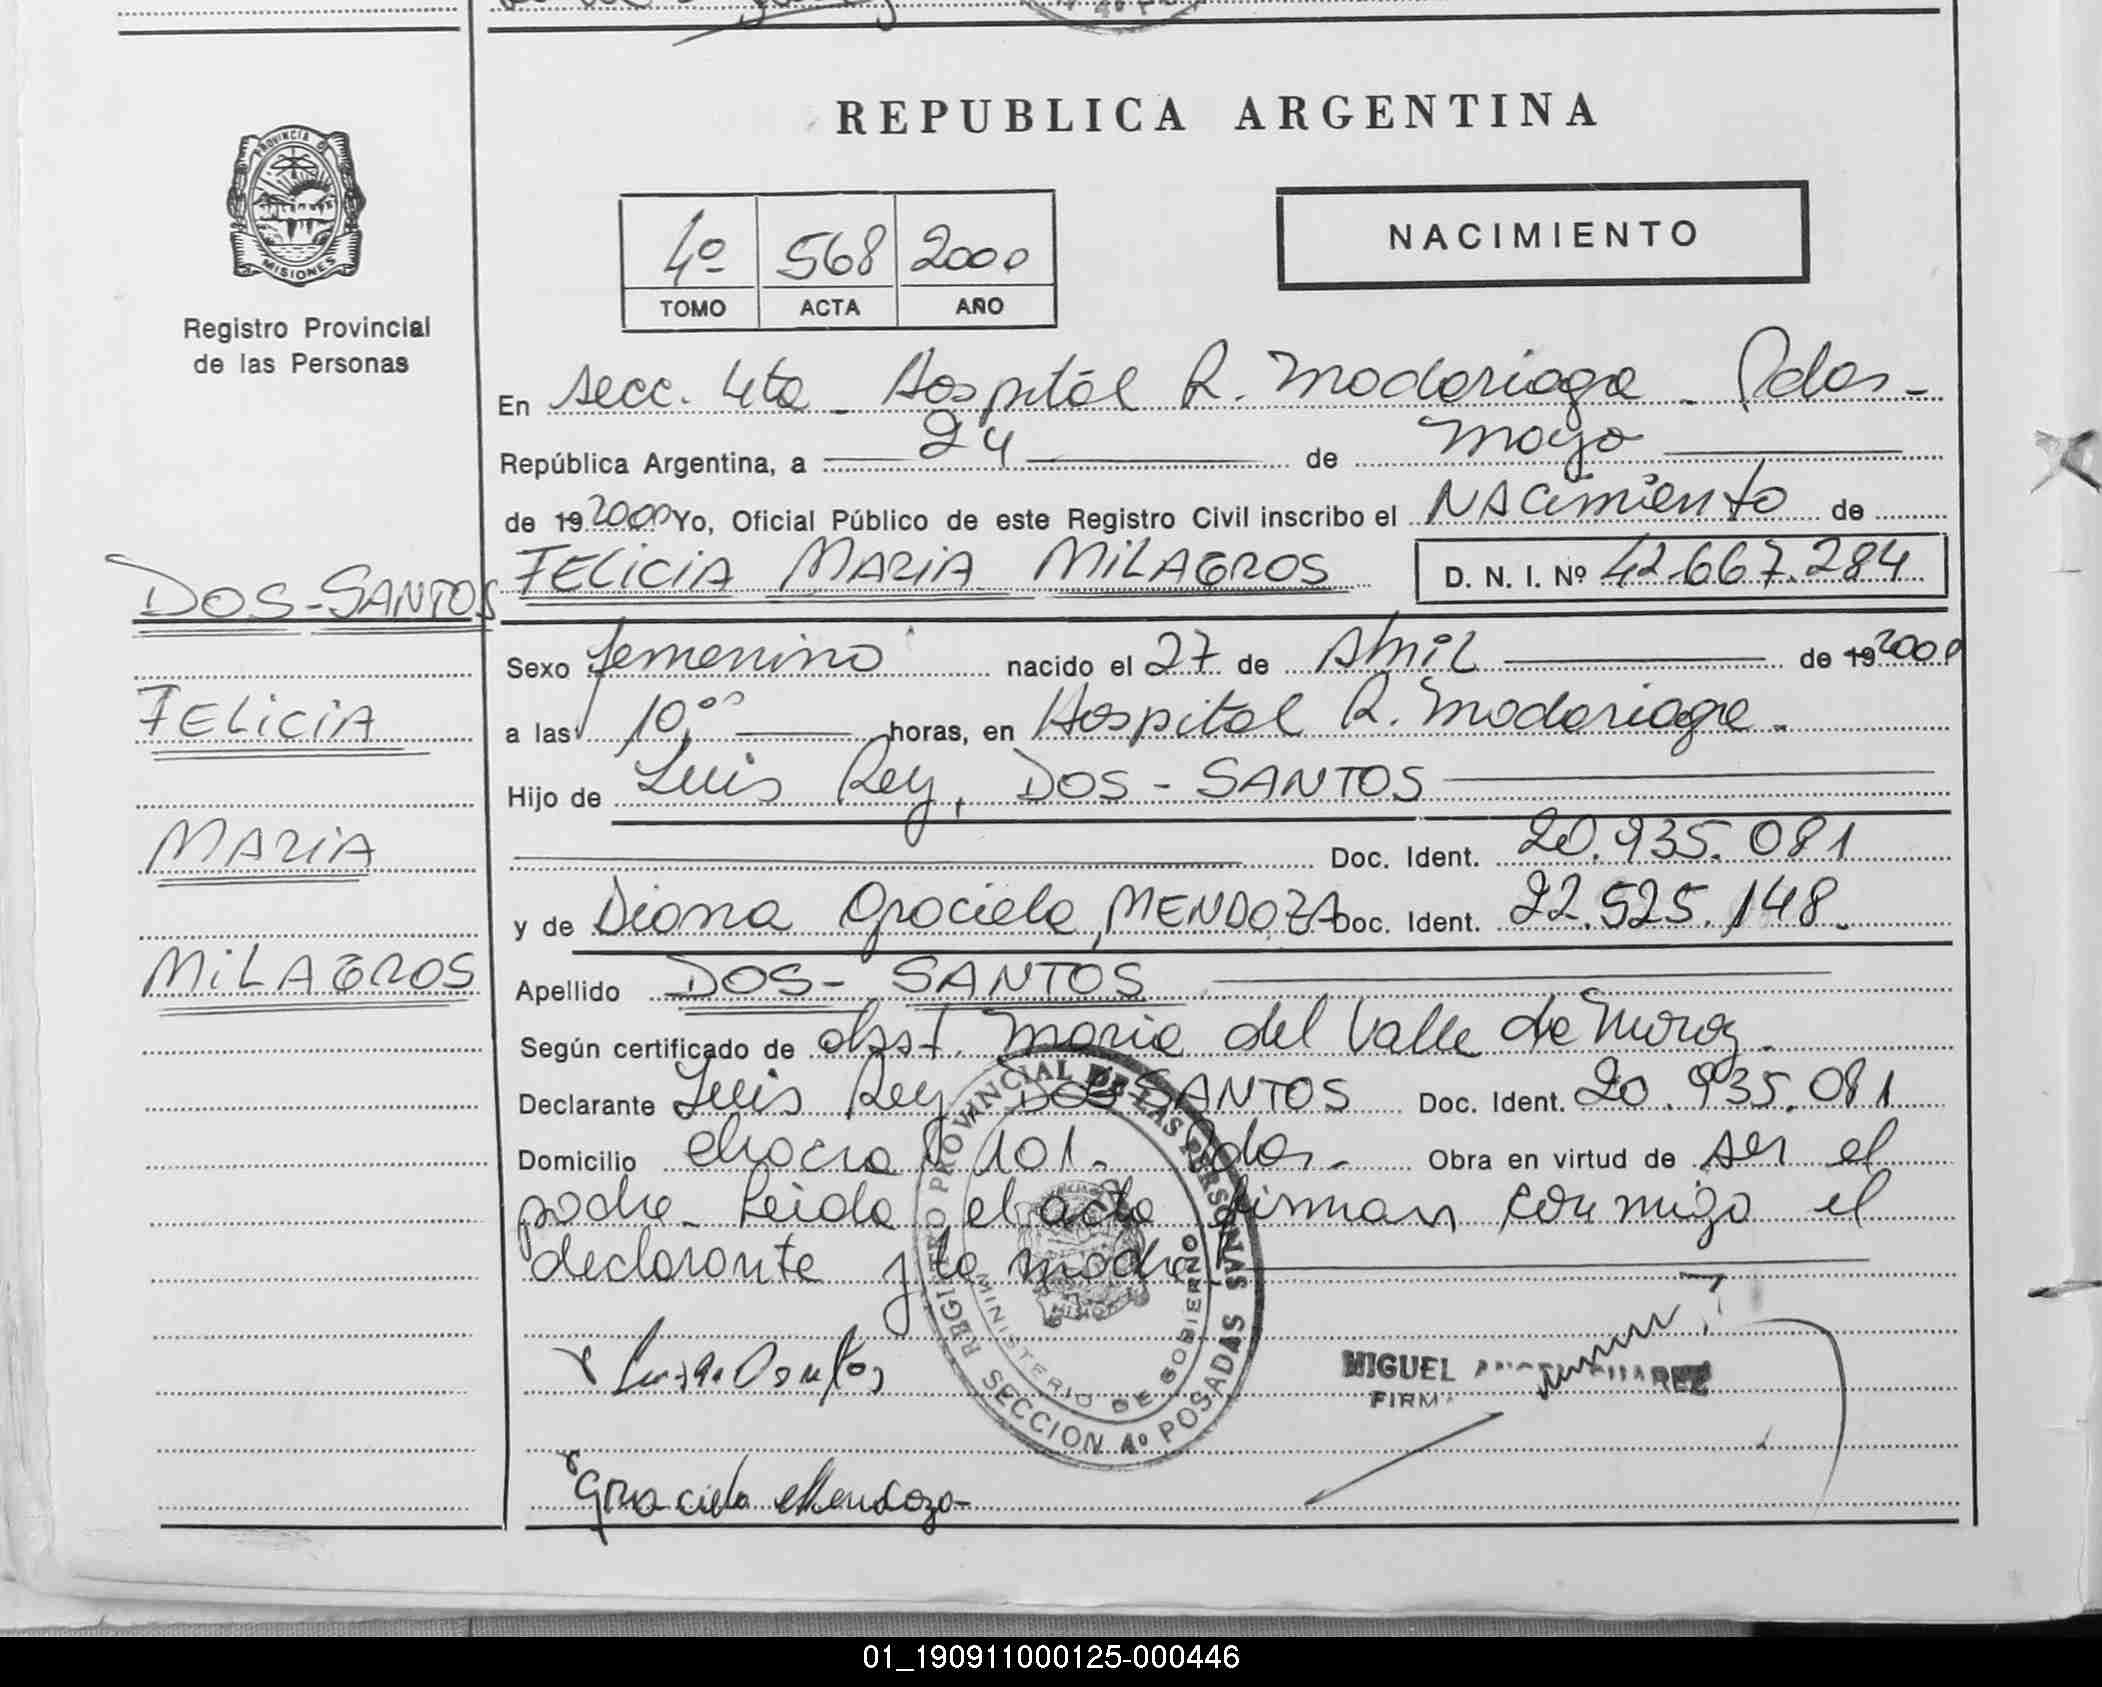 REPUBLICA ARGENTINA
PROVINCIA D
MISIONES
Registro Provincial
de las Personas
4º 568 2000
TOMO ACTA AÑO
NACIMIENTO
En secc. 4ta - Hospital R. Madariaga - Pdas -
República Argentina, a 24 de Mayo
de 19 2000 Yo, Oficial Público de este Registro Civil inscribo el NAcimiento de
DOS-SANTOS
FELICIA MARIA MILAGROS D. N. I. Nº 42.667.284
Sexo femenino nacido el 27 de Abril de 19 2000
FELICIA
a las 10,00 horas, en Hospital R. Madariaga -
Hijo de Luis Rey, DOS - SANTOS
MARIA
Doc. Ident. 20.935.081
y de Diana Graciela, MENDOZA Doc. Ident. 22.525.148.
MILAGROS
Apellido DOS - SANTOS
Según certificado de obst. Maria del Valle de
Declarante Luis Rey DOS SANTOS Doc. Ident. 20.935.081
Domicilio chacra 101. Pdas - Obra en virtud de ser el
padre - Leida el acta firman conmigo el
declarante y la madre
REGISTRO PROVINCIAL DE LAS PERSONAS
MINISTERIO DE GOBIERNO
SECCION 4º POSADAS
MIGUEL
FIRMA
Graciela Mendoza
01_190911000125-000446